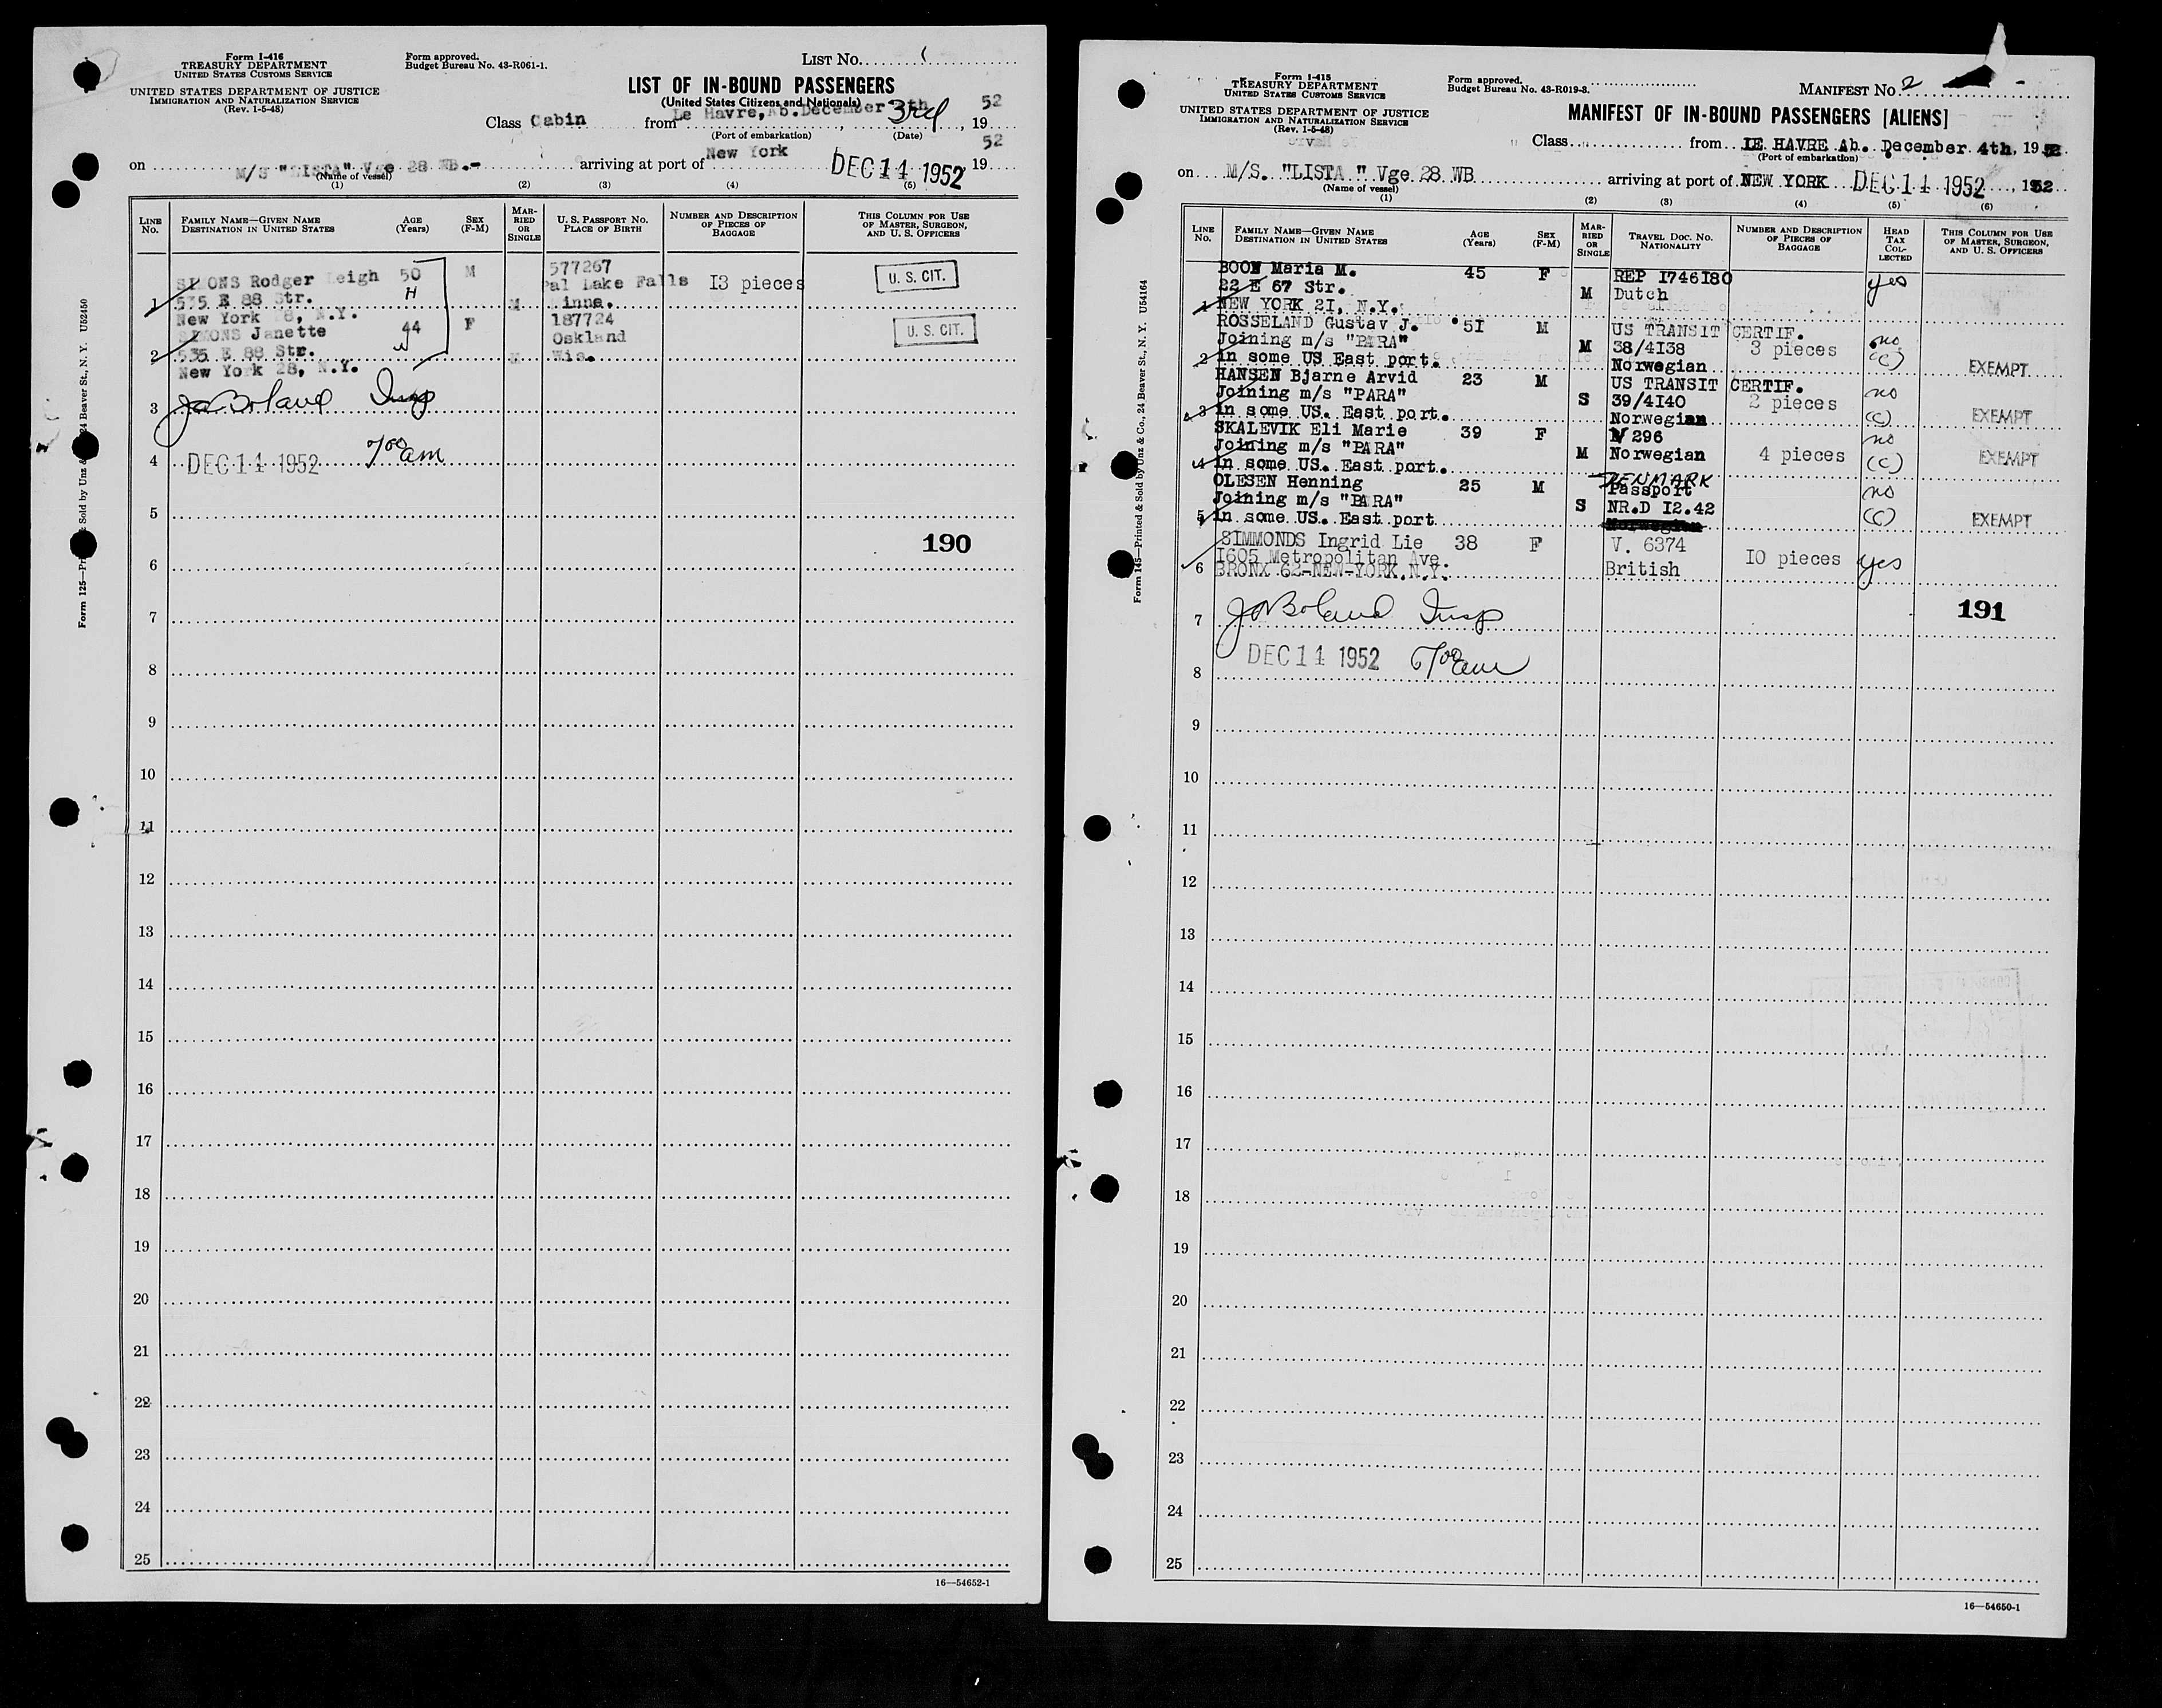 Form I-416
TREASURY DEPARTMENT
UNITED STATES CUSTOMS SERVICE
UNITED STATES DEPARTMENT OF JUSTICE
IMMIGRATION AND NATURALIZATION SERVICE
(Rev. 1-5-48)
Form approved.
Budget Bureau No. 43-R061-1.
LIST No.
LIST OF IN-BOUND PASSENGERS
(United States Citizens and Nationals)
Class Cabin from Le Havre, Ab. December 3rd, 19 52
(Port of embarkation) (Date)
on M/S "LISTA" Vge 28 WB.- arriving at port of New York DEC 14 1952 19 52
(Name of vessel)
(1) (2) (3) (4) (5)
LINE No.
FAMILY NAME—GIVEN NAME
DESTINATION IN UNITED STATES
AGE (Years)
SEX (F-M)
MARRIED OR SINGLE
U. S. PASSPORT No.
PLACE OF BIRTH
NUMBER AND DESCRIPTION OF PIECES OF BAGGAGE
THIS COLUMN FOR USE OF MASTER, SURGEON, AND U. S. OFFICERS
1 SIMONS Rodger Leigh 50 M 577267
535 E 88 Str. H M Pal Lake Falls 13 pieces U. S. CIT.
New York 28, N.Y. Minna.
2 SIMONS Janette 44 F 187724
535 E 88 Str. W M Oskland U. S. CIT.
New York 28, N.Y. Wis.
3 JABoland Insp
4 DEC 14 1952 700am
5
190
6
7
8
9
10
11
12
13
14
15
16
17
18
19
20
21
22
23
24
25
16—54652-1
Form I-415
TREASURY DEPARTMENT
UNITED STATES CUSTOMS SERVICE
UNITED STATES DEPARTMENT OF JUSTICE
IMMIGRATION AND NATURALIZATION SERVICE
(Rev. 1-5-48)
Form approved.
Budget Bureau No. 43-R019-3.
MANIFEST No. 2
MANIFEST OF IN-BOUND PASSENGERS [ALIENS]
Class from LE HAVRE Ab. December 4th, 19 52
(Port of embarkation)
on M/S. "LISTA" Vge 28 WB arriving at port of NEW YORK DEC 14 1952, 1952
(Name of vessel)
(1) (2) (3) (4) (5) (6)
LINE No.
FAMILY NAME—GIVEN NAME
DESTINATION IN UNITED STATES
AGE (Years)
SEX (F-M)
MARRIED OR SINGLE
TRAVEL DOC. No.
NATIONALITY
NUMBER AND DESCRIPTION OF PIECES OF BAGGAGE
HEAD TAX COLLECTED
THIS COLUMN FOR USE OF MASTER, SURGEON, AND U. S. OFFICERS
1 BOON Maria M. 45 F REP 1746180 yes
22 E 67 Str. M Dutch
NEW YORK 21, N.Y.
2 ROSSELAND Gustav J. 51 M US TRANSIT CERTIF.
Joining m/s "PARA" M 38/4138 3 pieces no
in some US East port. Norwegian (C) EXEMPT
3 HANSEN Bjarne Arvid 23 M US TRANSIT CERTIF.
Joining m/s "PARA" S 39/4140 2 pieces no
in some US. East port. Norwegian (C) EXEMPT
4 SKALEVIK Eli Marie 39 F V 296 no
Joining m/s "PARA" M Norwegian 4 pieces (C) EXEMPT
in some US. East port.
5 OLESEN Henning 25 M DENMARK Passport no
Joining m/s "PARA" S NR.D 12.42 (C) EXEMPT
in some US. East port Norwegian
6 SIMMONDS Ingrid Lie 38 F V. 6374
1605 Metropolitan Ave. British 10 pieces yes
BRONX 62-NEW-YORK.N.Y.
191
7 JABoland Insp
8 DEC 14 1952 700am
9
10
11
12
13
14
15
16
17
18
19
20
21
22
23
24
25
16—54650-1
Form 145—Printed & Sold by Unz & Co., 24 Beaver St., N. Y. U54164